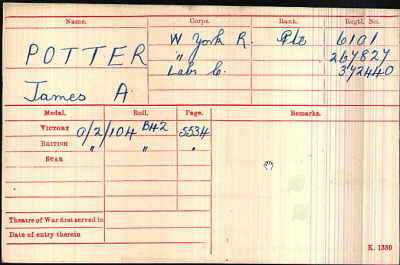 Name. Corps. Rank. Regtl. No.
POTTER W York R. Pte 6101
" 267827
James A. Lab. C. 372440
Medal. Roll. Page. Remarks.
VICTORY O/2/104 B42 5534
BRITISH " " "
STAR
Theatre of War first served in
Date of entry therein
K. 1380